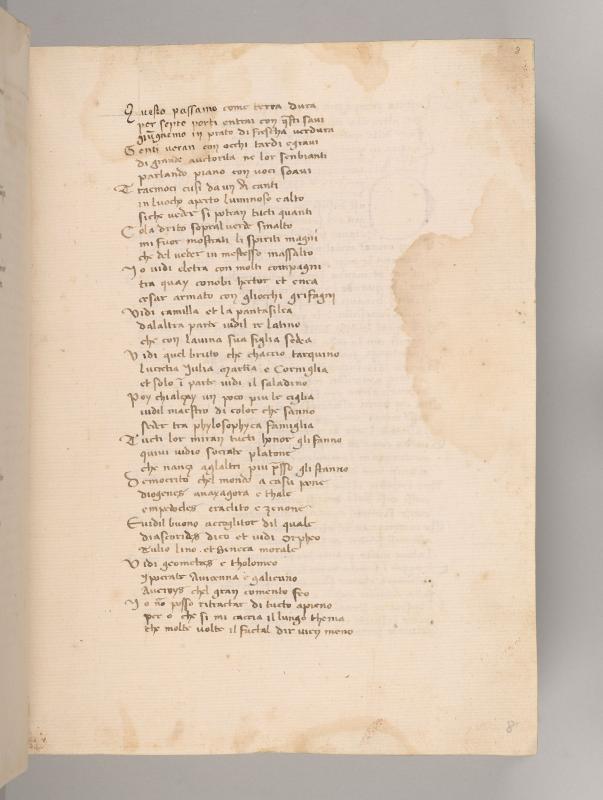 8
Questo passamo come terra dura
per septe porti entrai con q̄sti savi
giūgnemo in prato di frescha verdura
Genti veran con occhi tardi e gravi
di grande auctorita ne lor senbianti
parlando piano con voci soavi
Traemoci cusi da un di canti
in luocho aperto luminoso e alto
siche veder si potean tucti quanti
Cola drito sopral verde smalto
mi fuor mostrati li spiriti magni
che del veder in mestesso massalto
Io vidi eletra con molti compagni
tra quay conobi hector et enea
cesar armato con gliocchi grifagni
Vidi camilla et la pantasilea
dalaltra parte vidil re latino
che con lavina sua figlia sedea
Vidi quel bruto che chaccio tarquino
lucretia Iulia martia e Corniglia
et solo ī parte vidi il saladino
Poy chialçay un poco piu le ciglia
vidil maestro di color che sanno
seder tra phylosophyca famiglia
Tucti lor miran tucti honor gli fanno
quivi vidio socrate platone
che nançi aglaltri piu p̄sso gli stanno
Democrito chel mondo a caso pone
diogenes anaxagora e thale
empedocles eraclito e zenone
Evidil buono accoglitor dil quale
diascorides dico et vidi Orpheo
Tulio lino et Seneca morale
Vidi geometra e tholomeo
ypocrate Avicenna e galieno
Averoys chel gran comento feo
Io nō posso ritractar di tucto apieno
per o che si mi caccia il lungo thema
che molte volte il factal dir vien meno
8